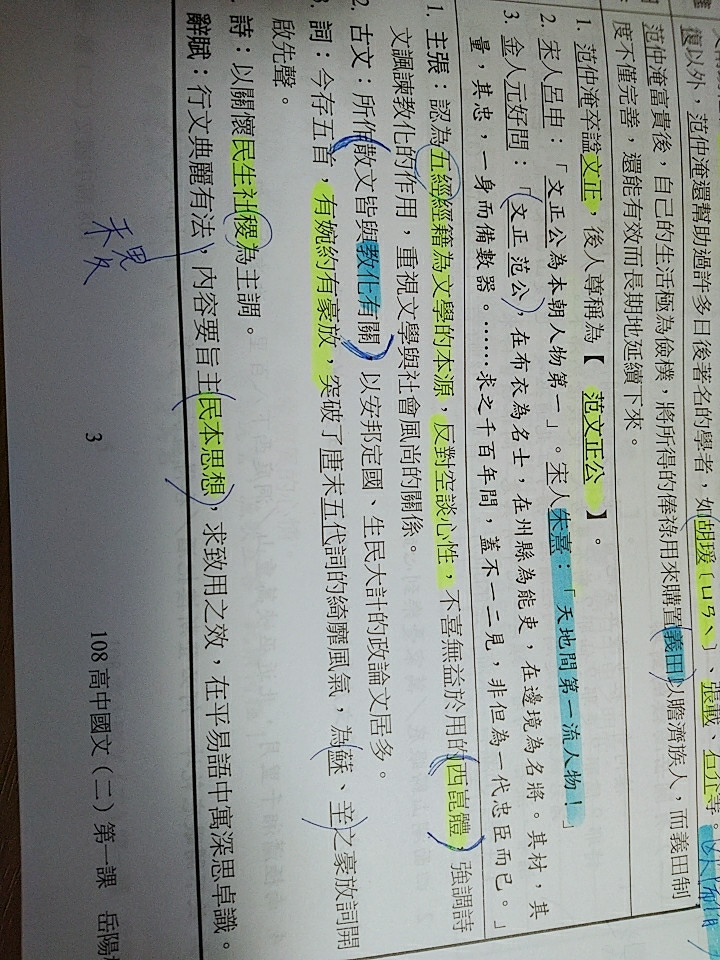 復以外，范仲淹還幫助過許多日後著名的學者，如胡瑗〔ㄩㄢˋ〕、張載、石介等。
范仲淹富貴後，自己的生活極為儉樸，將所得的俸祿用來購置義田以贍濟族人，而義田制
度不僅完善，還能有效而長期地延續下來。
1. 范仲淹卒諡文正，後人尊稱為【 范文正公 】。
2. 宋人呂中：「文正公為本朝人物第一」。宋人朱熹：「天地間第一流人物！」
3. 金人元好問：「文正范公，在布衣為名士，在州縣為能吏，在邊境為名將。其材，其
量，其忠，一身而備數器。……求之千百年間，蓋不一二見，非但為一代忠臣而已。」
1. 主張：認為五經經籍為文學的本源，反對空談心性，不喜無益於用的西崑體，強調詩
文諷諫教化的作用，重視文學與社會風尚的關係。
2. 古文：所作散文皆與教化有關，以安邦定國、生民大計的政論文居多。
3. 詞：今存五首，有婉約有豪放，突破了唐末五代詞的綺靡風氣，為蘇、辛之豪放詞開
啟先聲。
詩：以關懷民生社稷為主調。
辭賦：行文典麗有法，內容要旨主民本思想，求致用之效，在平易語中寓深思卓識。
3
108 高中國文（二）第一課 岳陽